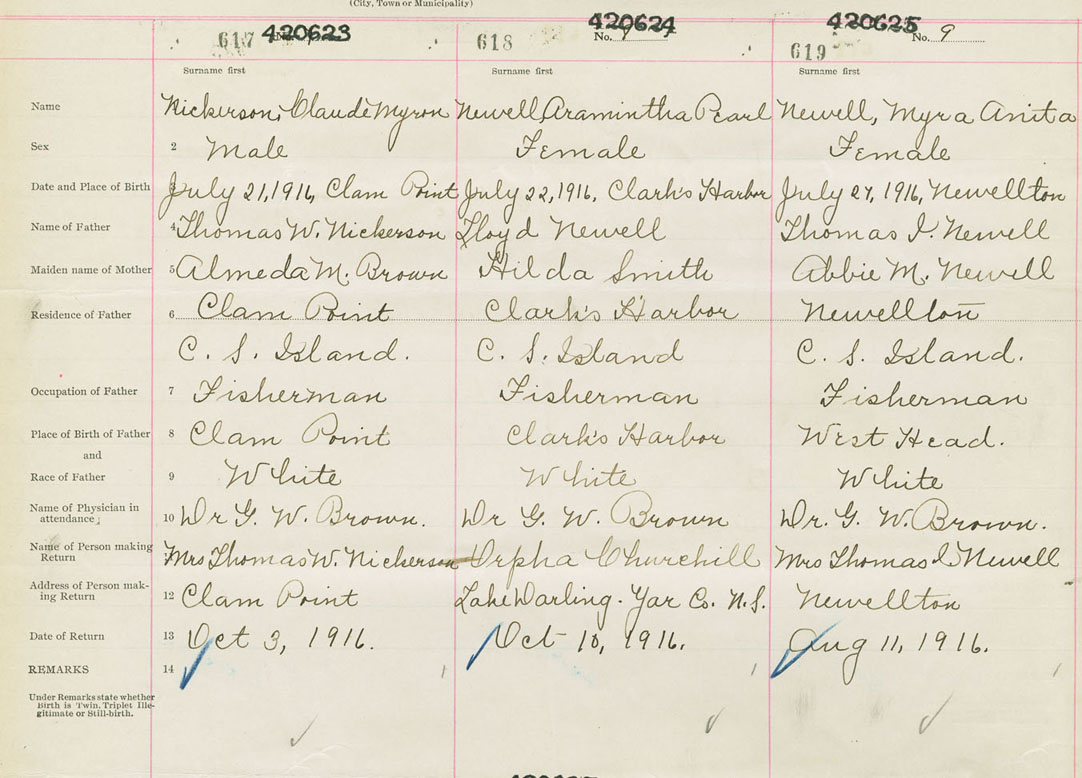 (City, Town or Municipality)
617 420623
618 420624 No. 9
619 420625 No. 9
Surname first Surname first Surname first
Name Nickerson, Claude Myron Newell, Aramintha Pearl Newell, Myra Anita
Sex 2 Male Female Female
Date and Place of Birth July 21, 1916, Clam Point July 22, 1916, Clark's Harbor July 27, 1916, Newellton
Name of Father 4 Thomas W. Nickerson Lloyd Newell Thomas I. Newell
Maiden name of Mother 5 Almeda M. Brown Hilda Smith Abbie M. Newell
Residence of Father 6 Clam Point Clark's Harbor Newellton
C. S. Island. C. S. Island C. S. Island.
Occupation of Father 7 Fisherman Fisherman Fisherman
Place of Birth of Father 8 Clam Point Clark's Harbor West Head.
and
Race of Father 9 White White White
Name of Physician in
attendance; 10 Dr G. W. Brown. Dr G. W. Brown Dr. G. W. Brown.
Name of Person making
Return Mrs Thomas W. Nickerson Orpha Churchill Mrs Thomas I Newell
Address of Person mak-
ing Return 12 Clam Point Lake Darling. Yar Co. N.S. Newellton
Date of Return 13 Oct 3, 1916. Oct 10, 1916. Aug 11, 1916.
REMARKS 14
Under Remarks state whether
Birth is Twin, Triplet Ille-
gitimate or Still-birth.